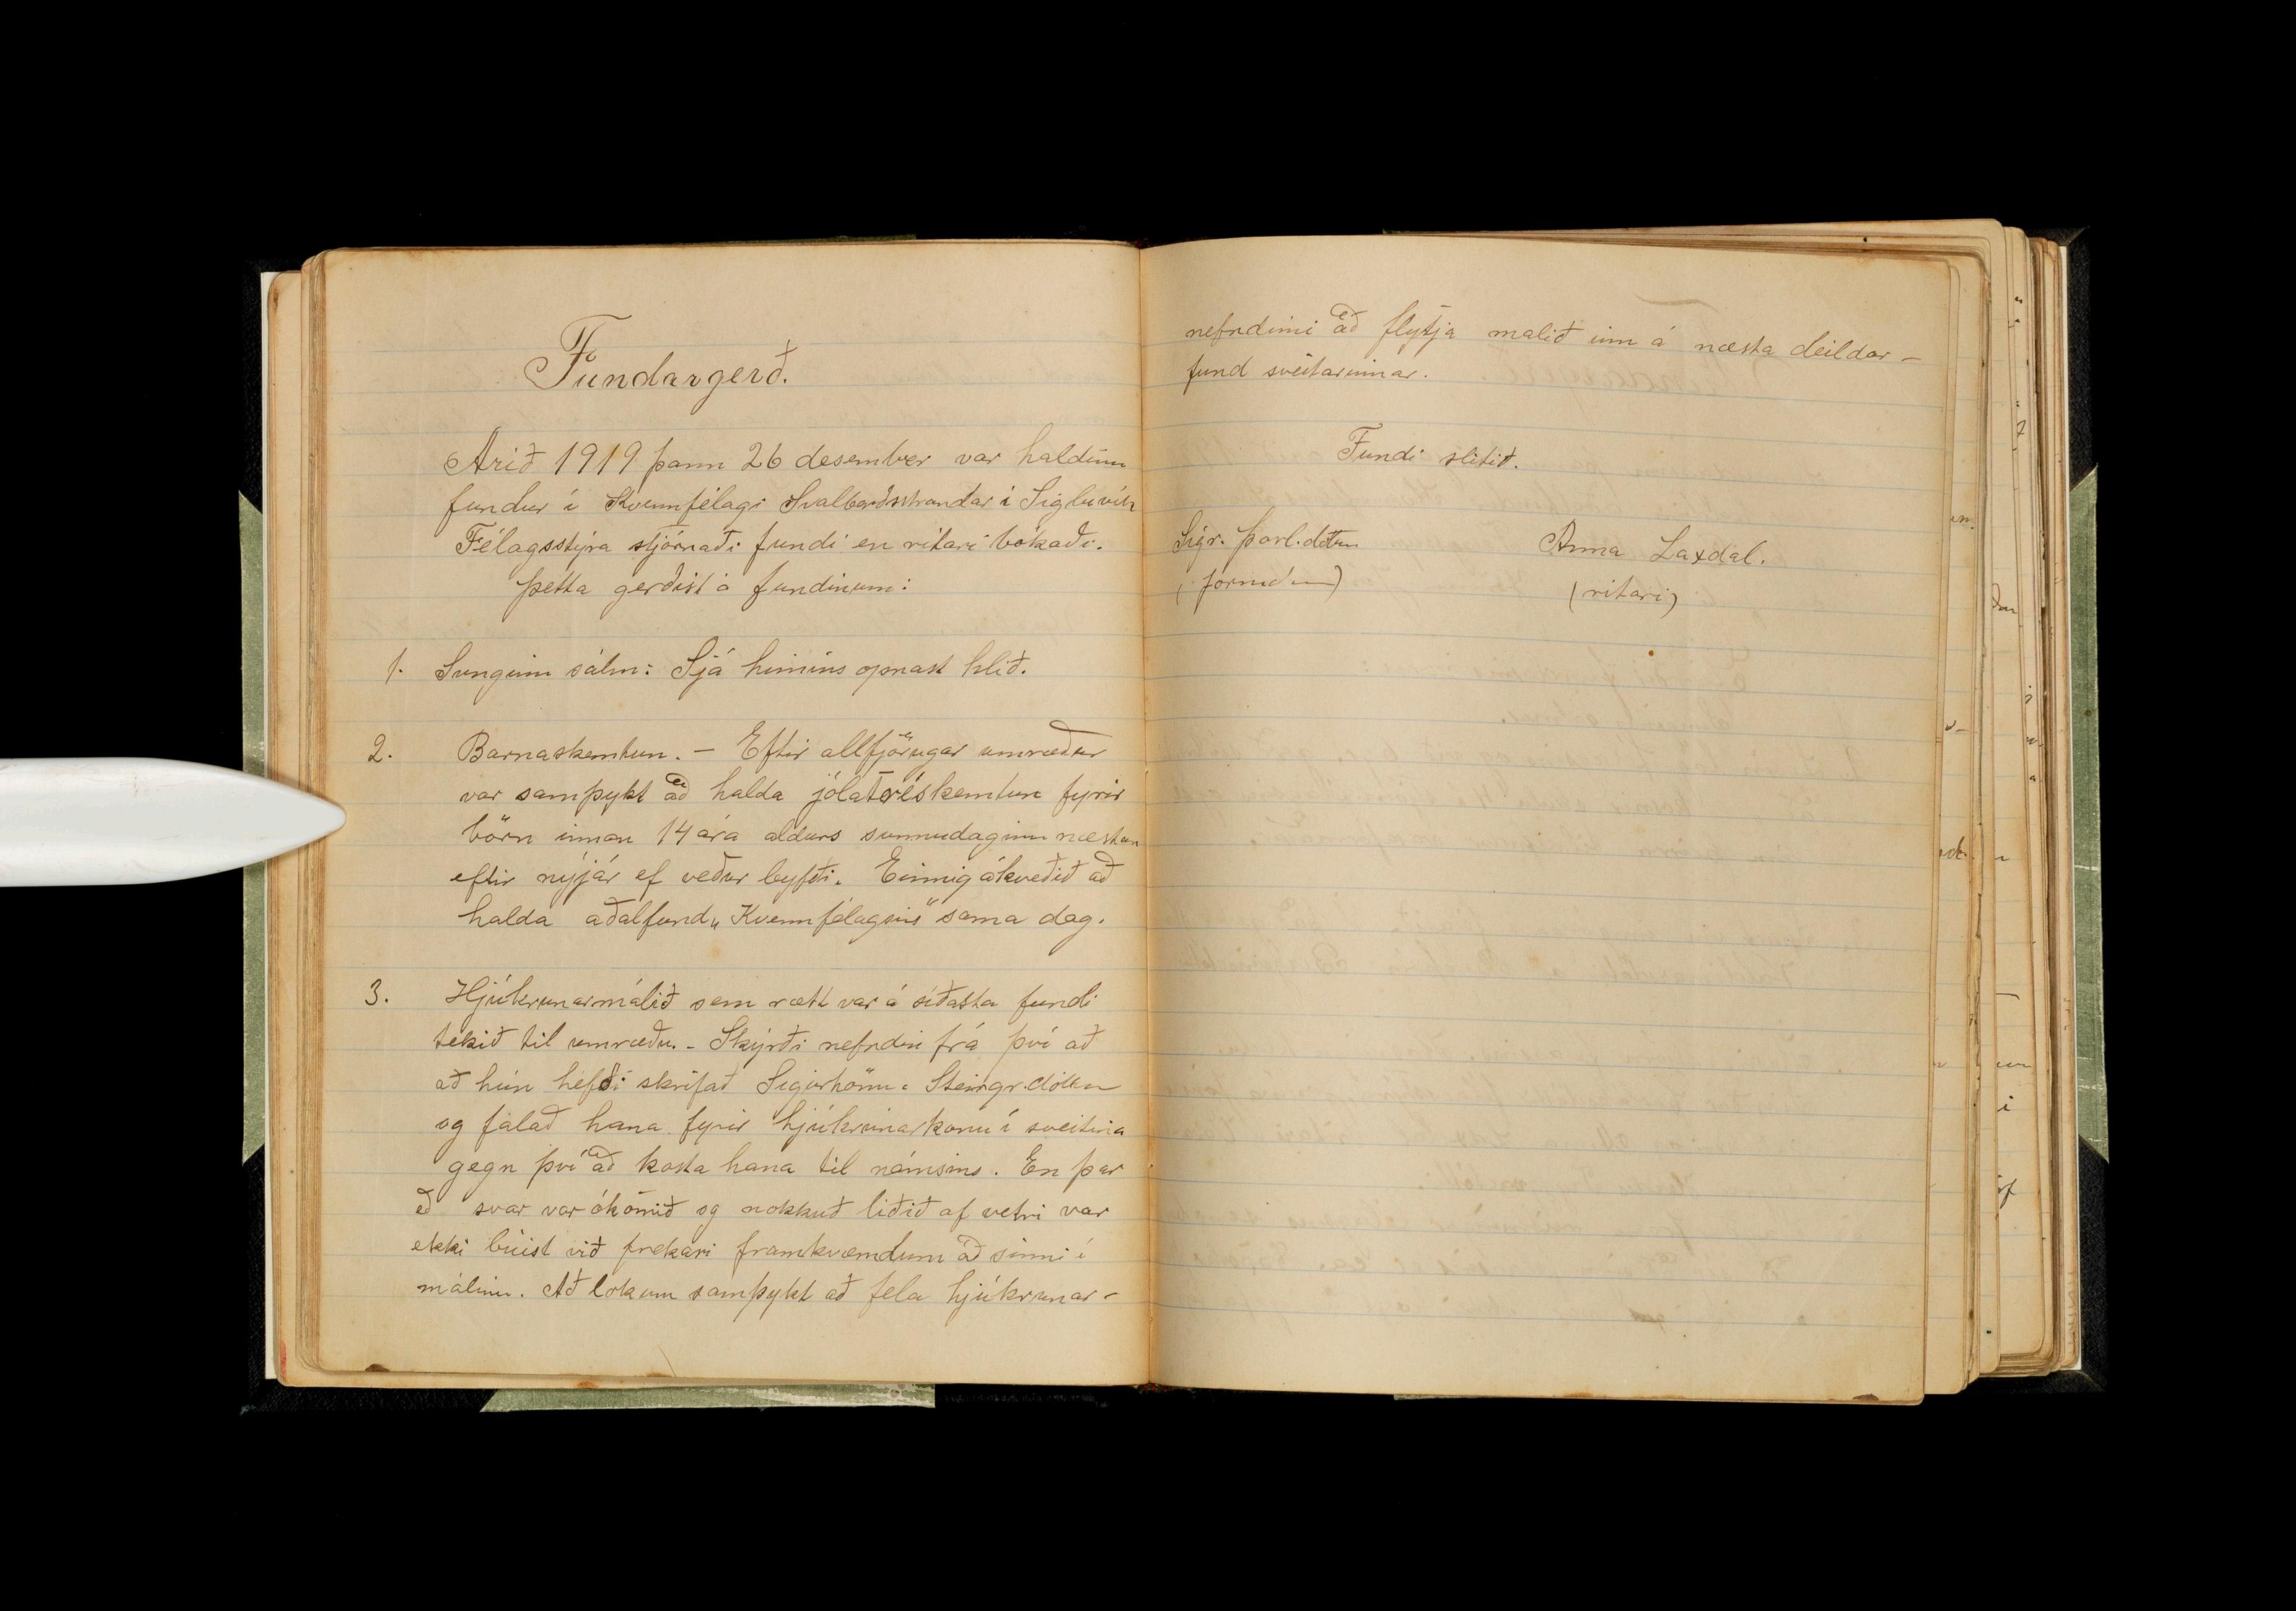 Fundargerð.
Árið 1919 þann 26 desember var haldinn
fundur í Kvennfélagi Svalbarðsstrandar í Sigluvík
Félagsstýra stjórnaði fundi en ritari bókaði.
Þetta gerðist á fundinum:
1. Sunginn sálm: Sjá himins opnast hlið.
2. Barnaskemtun. – Eftir allfjörugar umræður
var samþykt að halda jólatréskemtun fyrir
börn innan 14 ára aldurs sunnudaginn næstan
eftir nýjár ef veður leyfði. Einnig ákveðið að
halda aðalfund „Kvennfélagsins“ sama dag.
3. Hjúkrunarmálið sem rætt var á síðasta fundi
tekið til umræðu. – Skýrði nefndin frá því að
að hún hefði skrifað Sigurhönnu Steingr.dóttur
og falað hana fyrir hjúkrunarkonu í sveitina
gegn því að kosta hana til námsins. En þar
eð svar var ókomið og nokkuð liðið af vetri var
ekki búist við frekari framkvæmdum að sinni í
málinu. Að lokum samþykt að fela hjúkrunar-
nefndinni að flytja malið inn á næsta deildar-
fund sveitarinnar.
Fundi slitið.
Sigr. Þorl.dóttur Anna Laxdal.
(formaður) (ritari)